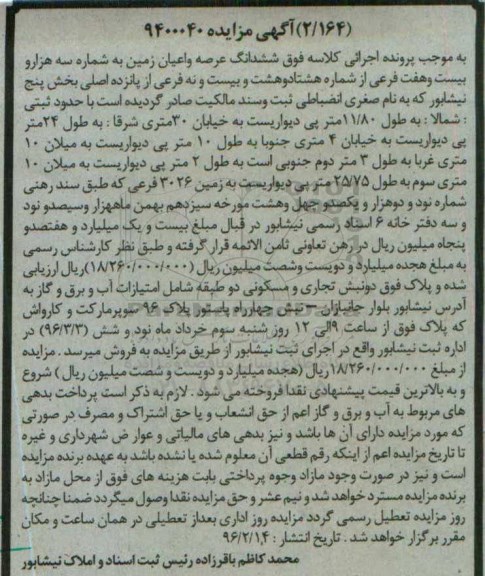 ۲/۱۶۴)آگهی مزایده ۹۴۰۰۰۴۰)
به موجب پرونده اجرائی کلاسه فوق ششدانگ عرصه واعیان زمین به شماره سه هزارو
بیست وهفت فرعی از شماره هشتادوهشت و بیست و نه فرعی از پانزده اصلی بخش پنج
نیشابور که به نام صغری انضباطی ثبت وسند مالکیت صادر گردیده است با حدود ثبتی
: شمالا : به طول ۱۱/۸۰متر پی دیواریست به خیابان ۳۰متری شرقا : به طول ۲۴متر
پی دیواریست به خیابان ۴ متری جنوبا به طول ۱۰ متر پی دیواریست به میلان ۱۰
متری غربا به طول ۳ متر دوم جنوبی است به طول ۲ متر پی دیواریست به میلان ۱۰
متری سوم به طول ۲۵/۷۵ متر پی دیواریست به زمین ۳۰۲۶ فرعی که طبق سند رهنی
شماره نود و دوهزار و یکصدو چهل وهشت مورخه سیزدهم بهمن ماههزار وسیصدو نود
و سه دفتر خانه ۶ اسناد رسمی نیشابور در قبال مبلغ بیست و یک میلیارد و هفتصدو
پنجاه میلیون ریال در رهن تعاونی ثامن الائمه قرار گرفته و طبق نظر کارشناس رسمی
به مبلغ هجده میلیارد و دویست وشصت میلیون ریال (۱۸/۲۶۰/۰۰۰/۰۰۰)ریال ارزیابی
شده و پلاک فوق دونبش تجاری و مسکونی دو طبقه شامل امتیازات آب و برق و گاز به
آدرس نیشابور بلوار جانبازان –نبش چهارراه پاستور پلاک ۹۶ سوپرمارکت و کارواش
که پلاک فوق از ساعت ۹الی ۱۲ روز شنبه سوم خرداد ماه نود و شش (۹۶/۳/۳) در
اداره ثبت نیشابور واقع در اجرای ثبت نیشابور از طریق مزایده به فروش میرسد . مزایده
از مبلغ ۱۸/۲۶۰/۰۰۰/۰۰۰ریال (هجده میلیارد و دویست و شصت میلیون ریال ) شروع
و به بالاترین قیمت پیشنهادی نقدا فروخته می شود . لازم به ذکر است پرداخت بدهی
های مربوط به آب و برق و گاز اعم از حق انشعاب و یا حق اشتراک و مصرف در صورتی
که مورد مزایده دارای آن ها باشد و نیز بدهی های مالیاتی و عوارض شهرداری و غیره
تا تاریخ مزایده اعم از اینکه رقم قطعی آن معلوم شده یا نشده باشد به عهده برنده مزایده
است و نیز در صورت وجود مازاد وجوه پرداختی بابت هزینه های فوق از محل مازاد به
برنده مزایده مسترد خواهد شد و نیم عشر و حق مزایده نقدا وصول میگردد ضمنا چنانچه
روز مزایده تعطیل رسمی گردد مزایده روز اداری بعداز تعطیلی در همان ساعت و مکان
مقرر برگزار خواهد شد . تاریخ انتشار : ۹۶/۲/۱۴
محمد کاظم باقرزاده رئیس ثبت اسناد و املاک نیشابور